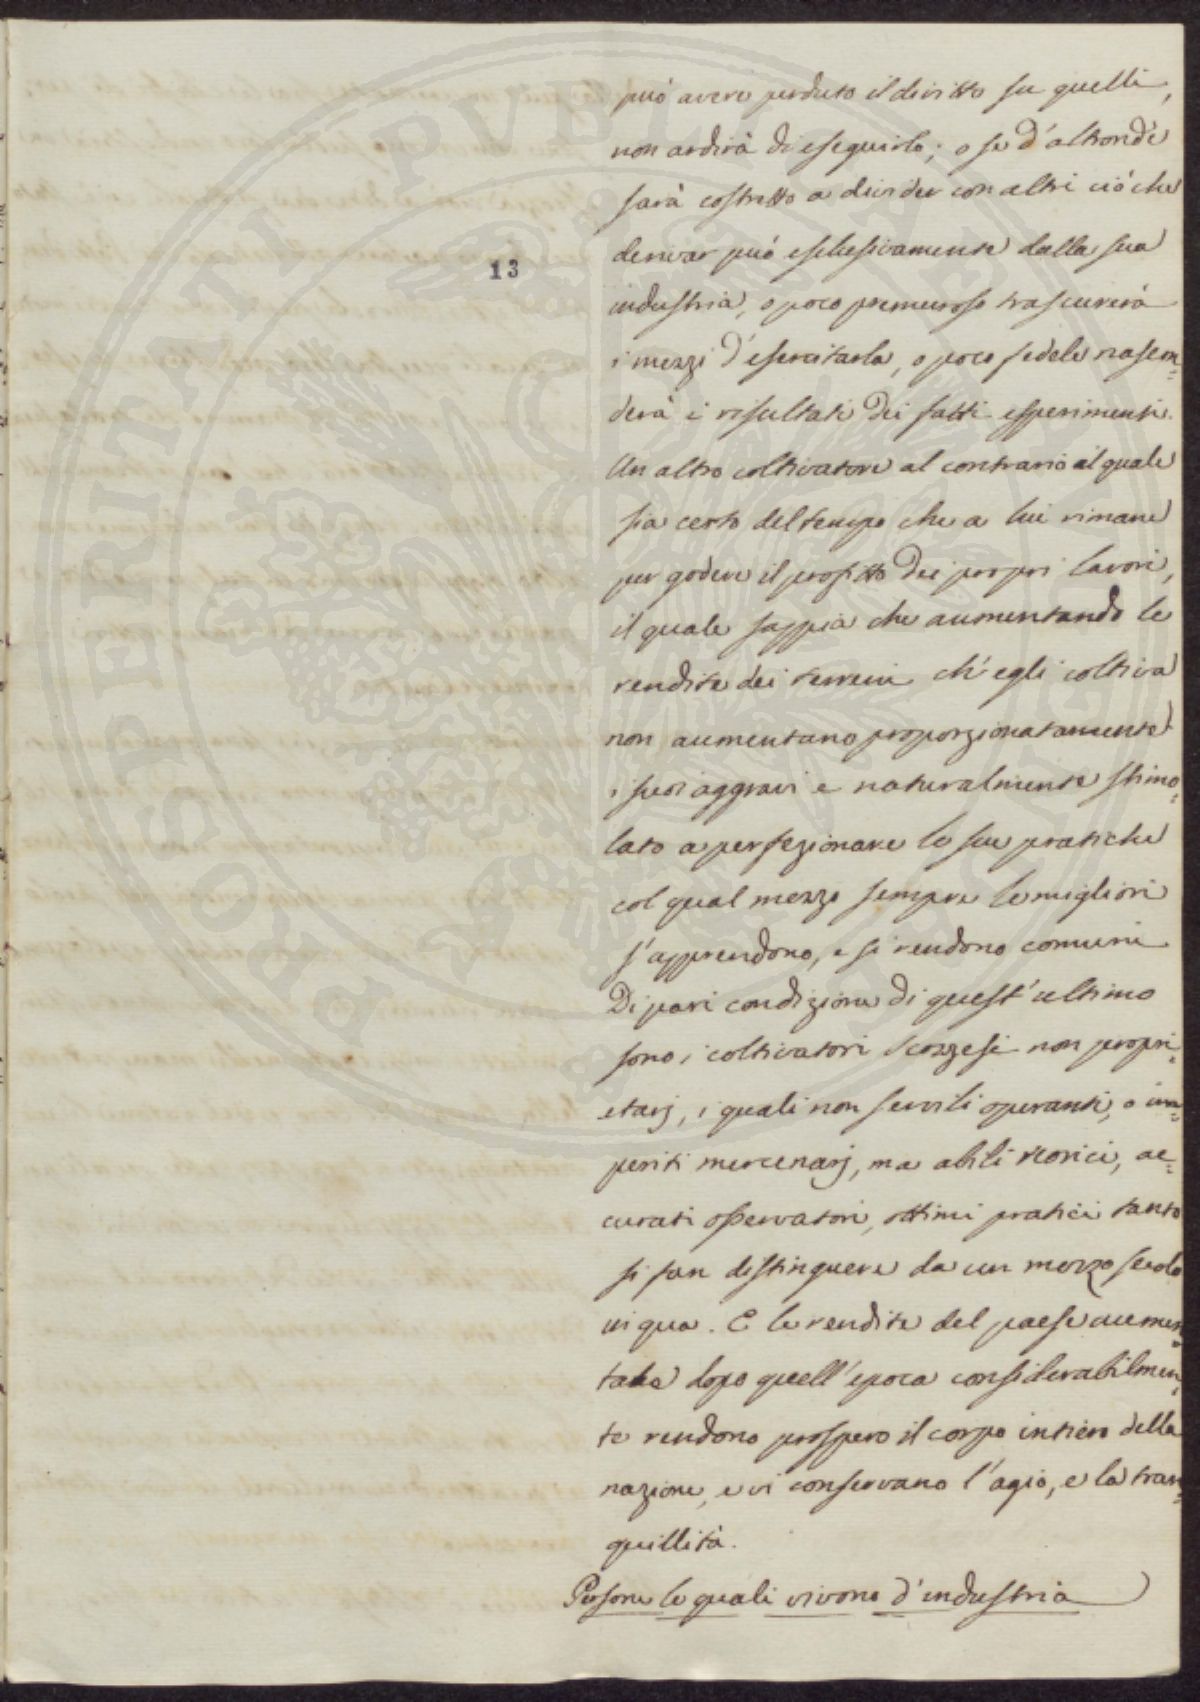 13
può avere perduto il diritto su quelli,
non ardirà di eseguirlo; o se d'altronde
sarà costretto a divider con altri ciò che
derivar può esclusivamente dalla sua
industria, o poco premuroso trascurerà
i mezzi d'esercitarla, o poco fedele nascon=
derà i risultati dei fatti esperimenti.
Un altro coltivatore al contrario il quale
sia certo del tempo che a lui rimane
per godere il profitto dei propri lavori,
il quale sappia che aumentando le
rendite dei terreni ch'egli coltiva
non aumentano proporzionatamente
i suoi aggravi e naturalmente stimo=
lato a perfezionare le sue pratiche
col qual mezzo sempre le migliori
s'apprendono, e si rendono comuni
Di pari condizione di quest'ultimo
sono i coltivatori Scozzesi non propri=
etarj, i quali non servili operanti, o im=
periti mercenarj, ma abili teorici, ac=
curati osservatori, ottimi pratici tanto
si fan distinguere da un mezzo secolo
in qua. E le rendite del paese aumen=
tate dopo quell'epoca considerabilmen=
te rendono prospero il corpo intiero della
nazione, e vi conservano l'agio, e la tran=
quillità.
Persone le quali vivono d'industria
POSTERITATI PVBLICAE